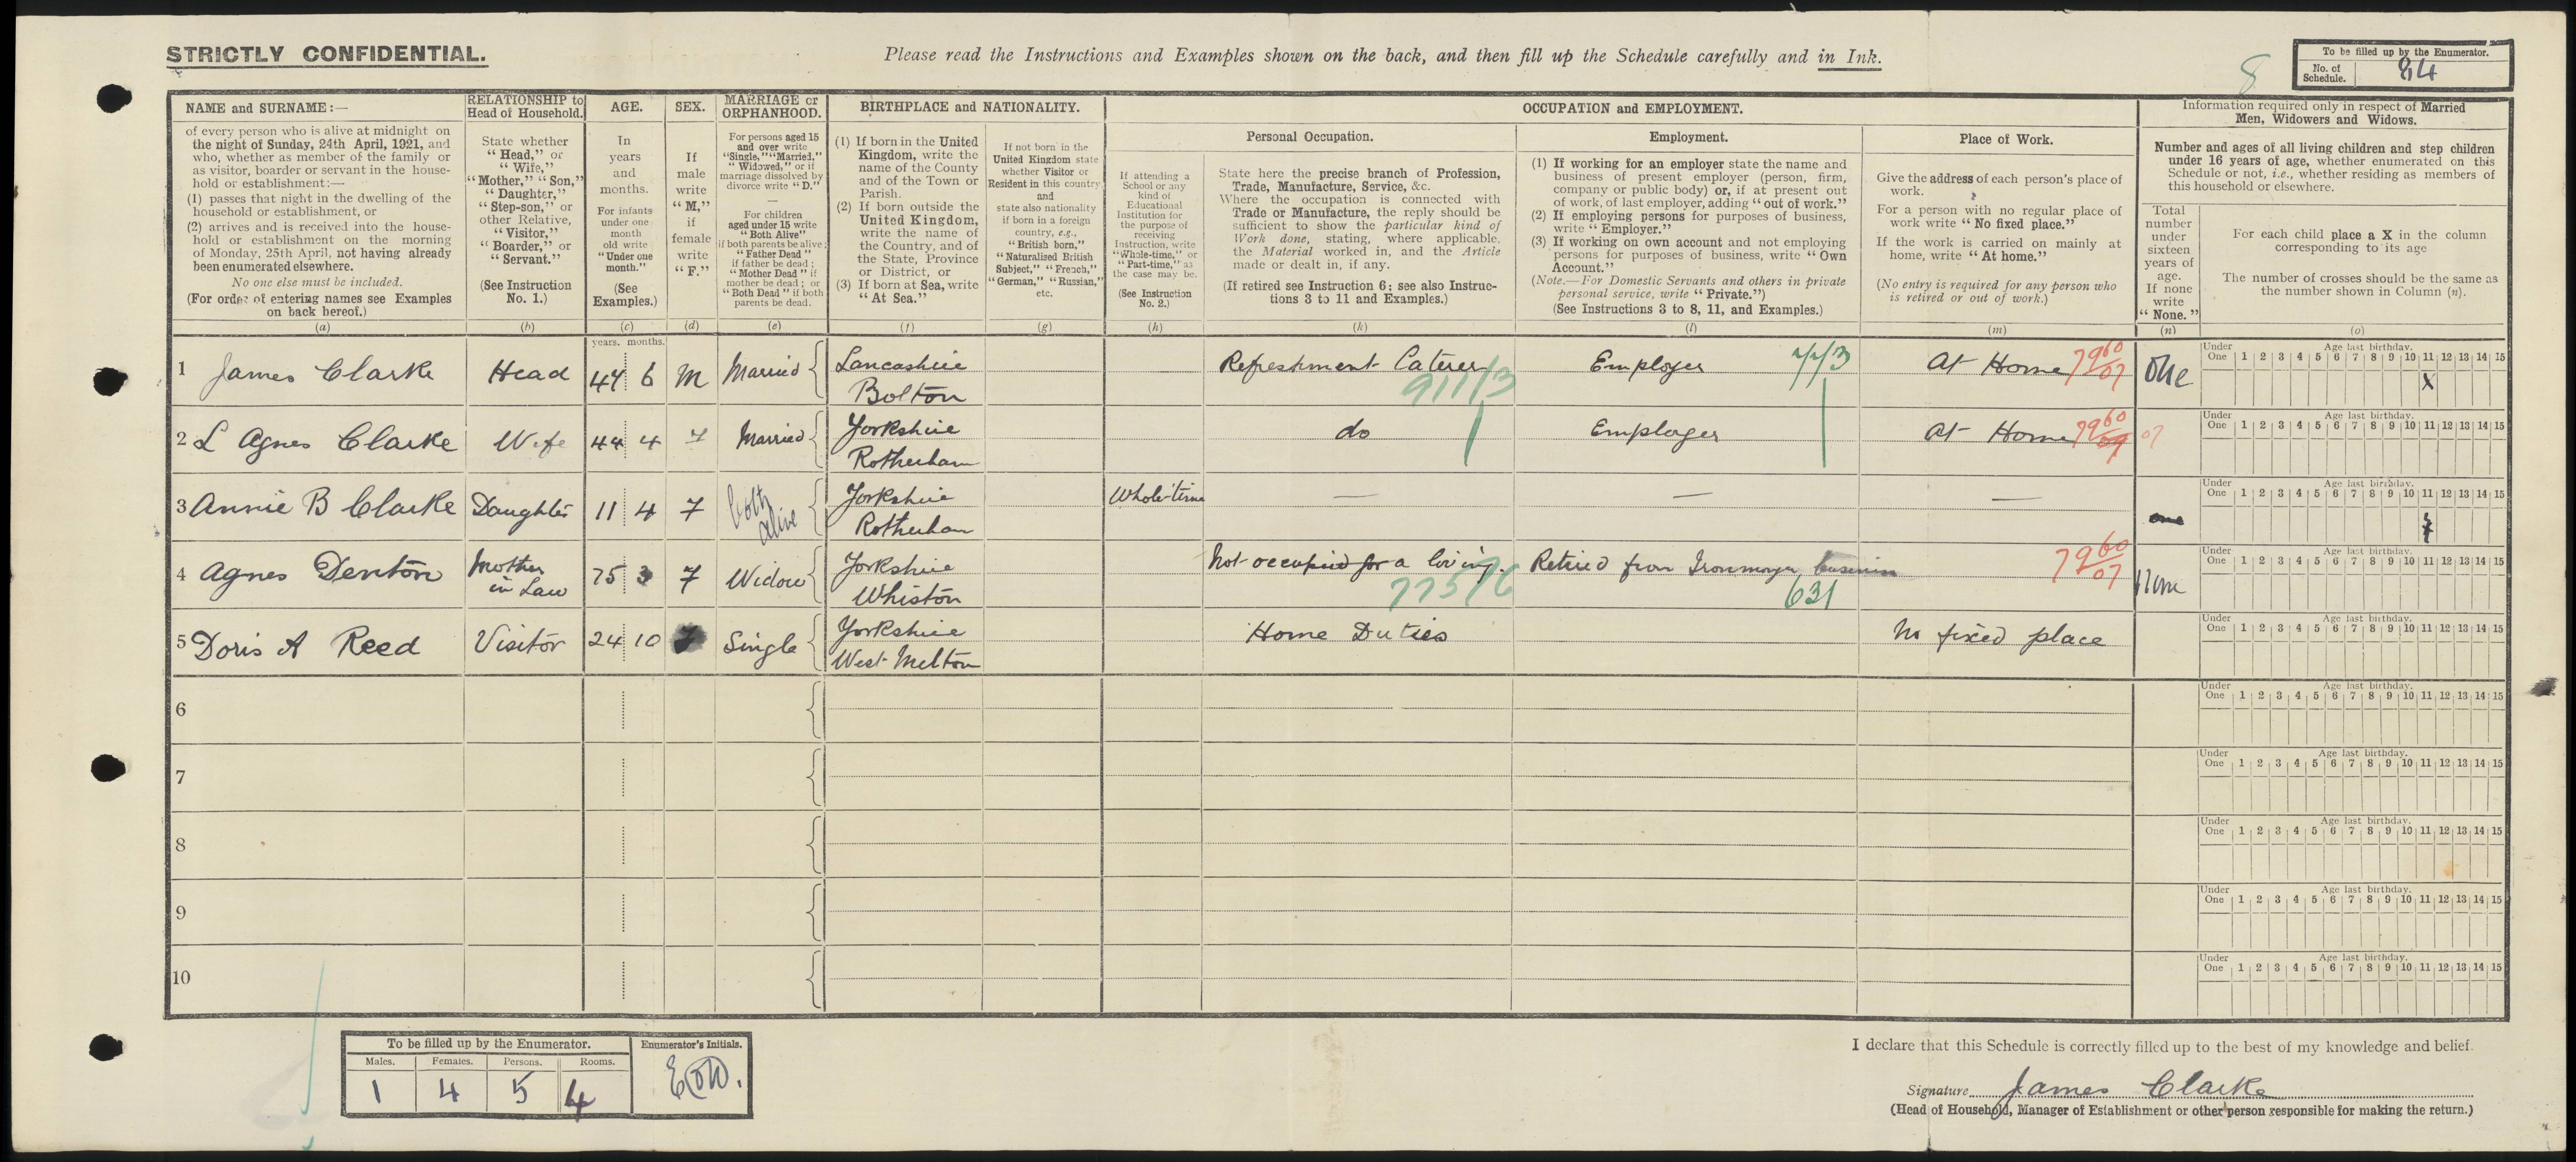 STRICTLY CONFIDENTIAL.
Please read the Instructions and Examples shown on the back, and then fill up the Schedule carefully and in Ink.
8
To be filled up by the Enumerator.
No. of Schedule. 84
NAME and SURNAME:—
of every person who is alive at midnight on
the night of Sunday, 24th April, 1921, and
who, whether as member of the family or
as visitor, boarder or servant in the house-
hold or establishment:—
(1) passes that night in the dwelling of the
household or establishment, or
(2) arrives and is received into the house-
hold or establishment on the morning
of Monday, 25th April, not having already
been enumerated elsewhere.
No one else must be included.
(For order of entering names see Examples
on back hereof.)
(a)
RELATIONSHIP to
Head of Household.
State whether
"Head," or
"Wife,"
"Mother," "Son,"
"Daughter,"
"Step-son," or
other Relative,
"Visitor,"
"Boarder," or
"Servant."
(See Instruction
No. 1.)
(b)
AGE.
In
years
and
months.
For infants
under one
month
old write
"Under one
month."
(See
Examples.)
(c)
SEX.
If
male
write
"M,"
if
female
write
"F."
(d)
MARRIAGE or
ORPHANHOOD.
For persons aged 15
and over write
"Single," "Married,"
"Widowed," or if
marriage dissolved by
divorce write "D."
—
For children
aged under 15 write
"Both Alive"
if both parents be alive;
"Father Dead"
if father be dead;
"Mother Dead" if
mother be dead; or
"Both Dead" if both
parents be dead.
(e)
BIRTHPLACE and NATIONALITY.
(1) If born in the United
Kingdom, write the
name of the County
and of the Town or
Parish.
(2) If born outside the
United Kingdom,
write the name of
the Country, and of
the State, Province
or District, or
(3) If born at Sea, write
"At Sea."
(f)
If not born in the
United Kingdom state
whether Visitor or
Resident in this country
and
state also nationality
if born in a foreign
country, e.g.,
"British born,"
"Naturalised British
Subject," "French,"
"German," "Russian,"
etc.
(g)
OCCUPATION and EMPLOYMENT.
If attending a
School or any
kind of
Educational
Institution for
the purpose of
receiving
Instruction, write
"Whole-time," or
"Part-time," as
the case may be.
(See Instruction
No. 2.)
(h)
Personal Occupation.
State here the precise branch of Profession,
Trade, Manufacture, Service, &c.
Where the occupation is connected with
Trade or Manufacture, the reply should be
sufficient to show the particular kind of
Work done, stating, where applicable,
the Material worked in, and the Article
made or dealt in, if any.
(If retired see Instruction 6; see also Instruc-
tions 3 to 11 and Examples.)
(k)
Employment.
(1) If working for an employer state the name and
business of present employer (person, firm,
company or public body) or, if at present out
of work, of last employer, adding "out of work."
(2) If employing persons for purposes of business,
write "Employer."
(3) If working on own account and not employing
persons for purposes of business, write "Own
Account."
(Note.—For Domestic Servants and others in private
personal service, write "Private.")
(See Instructions 3 to 8, 11, and Examples.)
(l)
Place of Work.
Give the address of each person's place of
work.
For a person with no regular place of
work write "No fixed place."
If the work is carried on mainly at
home, write "At home."
(No entry is required for any person who
is retired or out of work.)
(m)
Information required only in respect of Married
Men, Widowers and Widows.
Number and ages of all living children and step children
under 16 years of age, whether enumerated on this
Schedule or not, i.e., whether residing as members of
this household or elsewhere.
Total
number
under
sixteen
years of
age.
If none
write
"None."
(n)
For each child place a X in the column
corresponding to its age
The number of crosses should be the same as
the number shown in Column (n).
(o)
years. months.
Under One Age last birthday. 1 2 3 4 5 6 7 8 9 10 11 12 13 14 15
1 James Clarke Head 47 6 M Married Lancashire Bolton Refreshment Caterer 911/3 Employer 7/7/3 At Home 7960/07 One X
Under One Age last birthday. 1 2 3 4 5 6 7 8 9 10 11 12 13 14 15
2 L Agnes Clarke Wife 44 4 F Married Yorkshire Rotherham do Employer At Home 7960/07 07
Under One Age last birthday. 1 2 3 4 5 6 7 8 9 10 11 12 13 14 15
3 Annie B Clarke Daughter 11 4 F Both alive Yorkshire Rotherham Whole-time — — — one
Under One Age last birthday. 1 2 3 4 5 6 7 8 9 10 11 12 13 14 15
4 Agnes Denton Mother in Law 75 3 F Widow Yorkshire Whiston Not occupied for a living. 775/6 Retired from Ironmonger business 631 7960/07 None
Under One Age last birthday. 1 2 3 4 5 6 7 8 9 10 11 12 13 14 15
5 Doris A Reed Visitor 24 10 F Single Yorkshire West Melton Home Duties No fixed place
Under One Age last birthday. 1 2 3 4 5 6 7 8 9 10 11 12 13 14 15
6
Under One Age last birthday. 1 2 3 4 5 6 7 8 9 10 11 12 13 14 15
7
Under One Age last birthday. 1 2 3 4 5 6 7 8 9 10 11 12 13 14 15
8
Under One Age last birthday. 1 2 3 4 5 6 7 8 9 10 11 12 13 14 15
9
Under One Age last birthday. 1 2 3 4 5 6 7 8 9 10 11 12 13 14 15
10
To be filled up by the Enumerator.
Males. Females. Persons. Rooms.
1 4 5 4
Enumerator's Initials.
I declare that this Schedule is correctly filled up to the best of my knowledge and belief.
Signature James Clarke
(Head of Household, Manager of Establishment or other person responsible for making the return.)